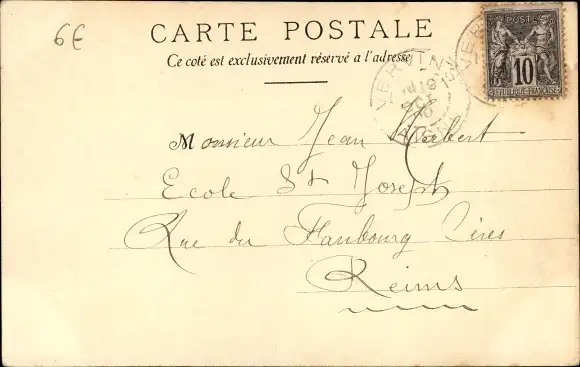 6€
CARTE POSTALE
Ce coté est exclusivement réservé a l'adresse
POSTE
10
REPUBLIQUE FRANÇAISE
VERVINS
19
AISNE
VER
Monsieur Jean
Ecole St Joseph
Rue du Faubourg Cères
Reims